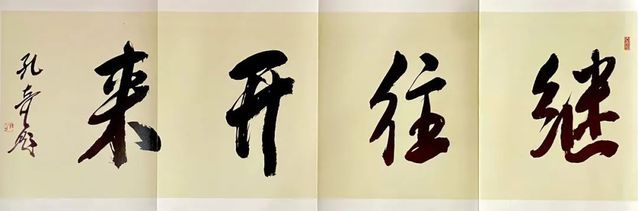 继往开来
孔奇